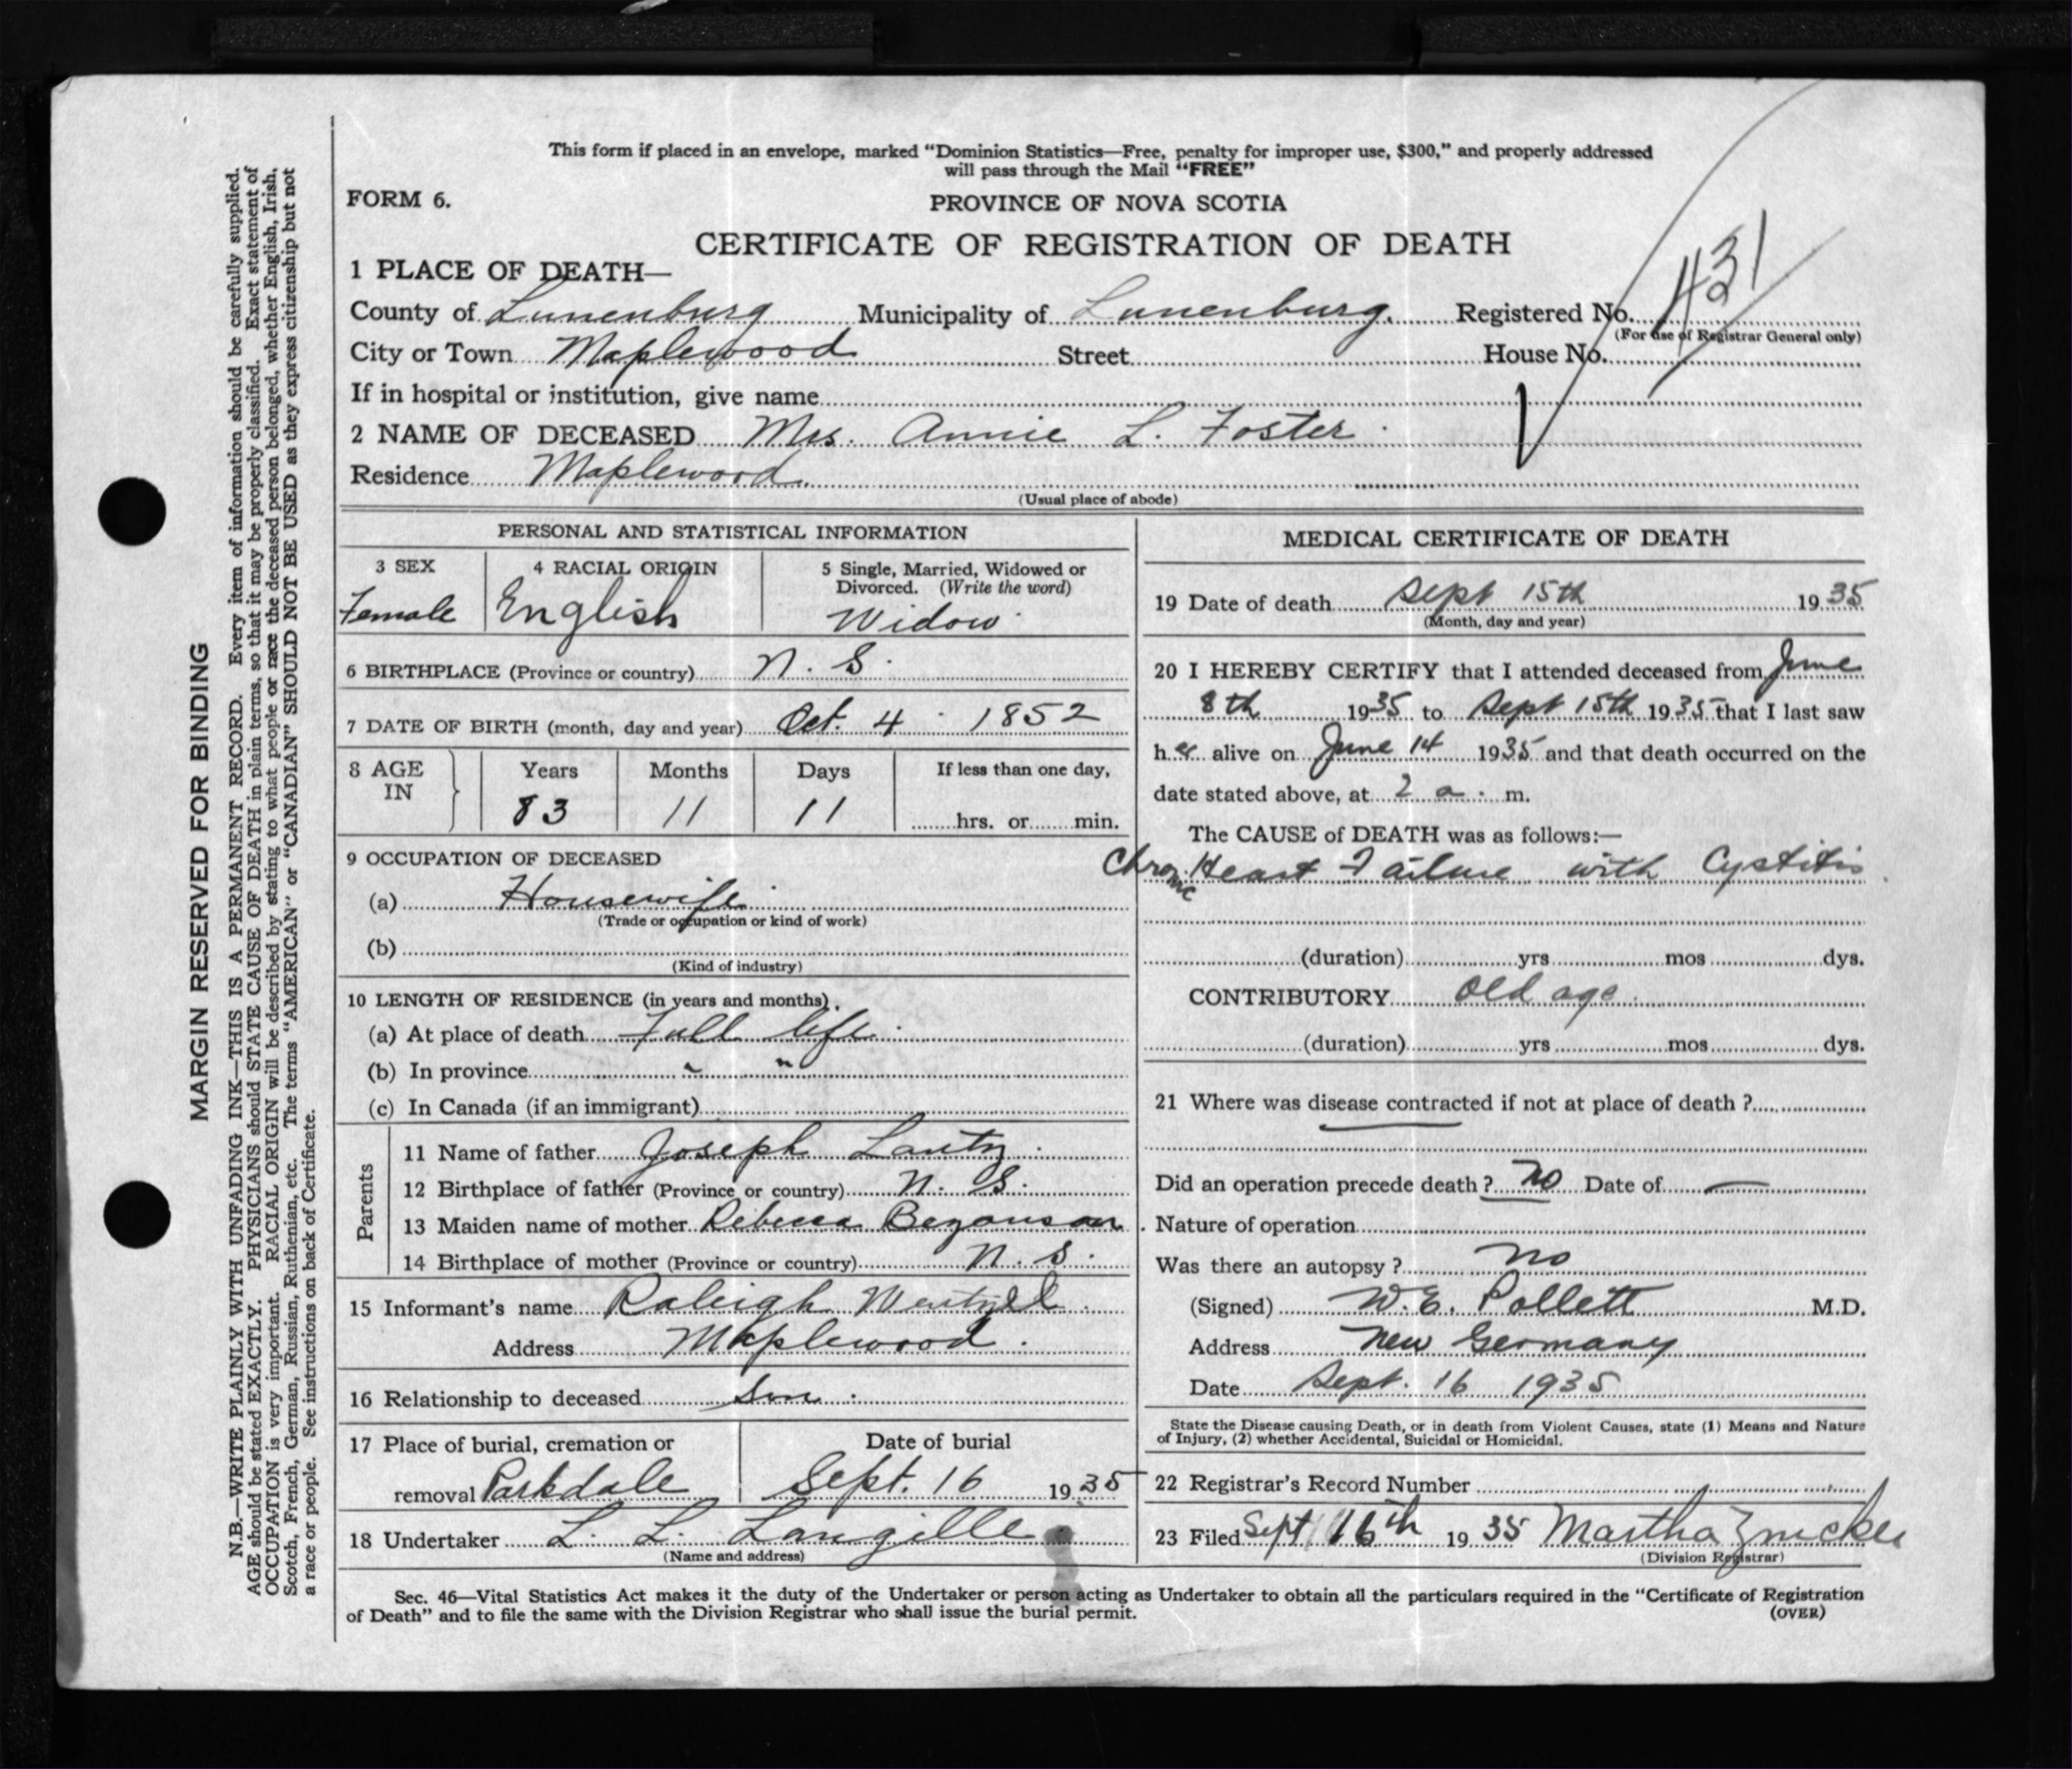 This form if placed in an envelope, marked “Dominion Statistics—Free, penalty for improper use, $300,” and properly addressed
will pass through the Mail “FREE”
FORM 6.
PROVINCE OF NOVA SCOTIA
CERTIFICATE OF REGISTRATION OF DEATH
1 PLACE OF DEATH—
County of Lunenburg Municipality of Lunenburg. Registered No. 431
(For use of Registrar General only)
City or Town Maplewood Street House No.
If in hospital or institution, give name
2 NAME OF DECEASED Mrs. Annie L. Foster
Residence Maplewood.
(Usual place of abode)
PERSONAL AND STATISTICAL INFORMATION
3 SEX 4 RACIAL ORIGIN 5 Single, Married, Widowed or
Divorced. (Write the word)
Female English Widow
6 BIRTHPLACE (Province or country) N. S.
7 DATE OF BIRTH (month, day and year) Oct. 4 1852
8 AGE Years Months Days If less than one day,
IN 83 11 11 hrs. or min.
9 OCCUPATION OF DECEASED
(a) Housewife
(Trade or occupation or kind of work)
(b)
(Kind of industry)
10 LENGTH OF RESIDENCE (in years and months)
(a) At place of death Full life.
(b) In province " "
(c) In Canada (if an immigrant)
Parents
11 Name of father Joseph Lantz
12 Birthplace of father (Province or country) N. S.
13 Maiden name of mother Rebecca Bezanson
14 Birthplace of mother (Province or country) N. S.
15 Informant's name Raleigh Wentzell
Address Maplewood.
16 Relationship to deceased Son
17 Place of burial, cremation or Date of burial
removal Parkdale Sept. 16 1935
18 Undertaker L. L. Langille
(Name and address)
MEDICAL CERTIFICATE OF DEATH
19 Date of death Sept 15th 1935
(Month, day and year)
20 I HEREBY CERTIFY that I attended deceased from June
8th 1935 to Sept 15th 1935 that I last saw
her alive on June 14 1935 and that death occurred on the
date stated above, at 2 a. m.
The CAUSE of DEATH was as follows:—
Chronic Heart Failure with Cystitis
(duration) yrs mos dys.
CONTRIBUTORY old age
(duration) yrs mos dys.
21 Where was disease contracted if not at place of death ?
Did an operation precede death ? No Date of —
Nature of operation
Was there an autopsy ? No
(Signed) W. E. Pollett M.D.
Address New Germany
Date Sept. 16 1935
State the Disease causing Death, or in death from Violent Causes, state (1) Means and Nature
of Injury, (2) whether Accidental, Suicidal or Homicidal.
22 Registrar's Record Number
23 Filed Sept 16th 1935 Martha Zwicker
(Division Registrar)
Sec. 46—Vital Statistics Act makes it the duty of the Undertaker or person acting as Undertaker to obtain all the particulars required in the “Certificate of Registration
of Death” and to file the same with the Division Registrar who shall issue the burial permit.
(OVER)
MARGIN RESERVED FOR BINDING
N.B.—WRITE PLAINLY WITH UNFADING INK—THIS IS A PERMANENT RECORD. Every item of information should be carefully supplied.
AGE should be stated EXACTLY. PHYSICIANS should STATE CAUSE OF DEATH in plain terms, so that it may be properly classified. Exact statement of
OCCUPATION is very important. RACIAL ORIGIN will be described by stating to what people or race the deceased person belonged, whether English, Irish,
Scotch, French, German, Russian, Ruthenian, etc. The terms “AMERICAN” or “CANADIAN” SHOULD NOT BE USED as they express citizenship but not
a race or people. See instructions on back of Certificate.